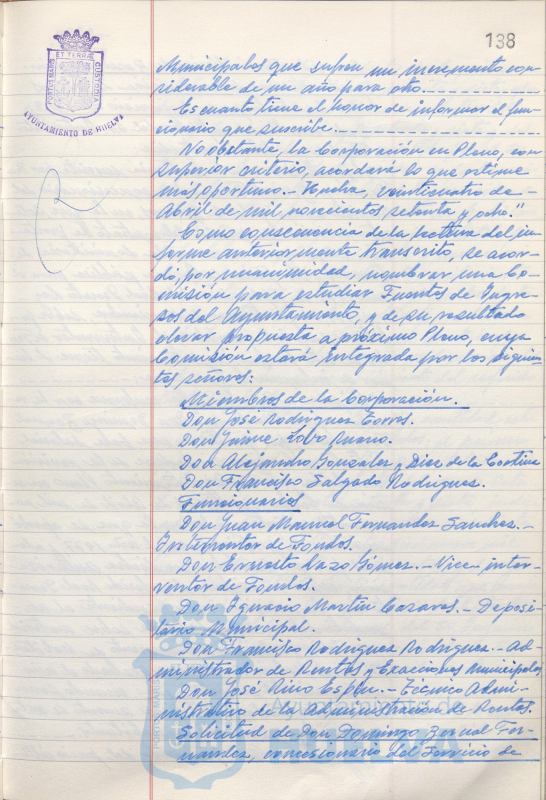 138
PORTUS MARIS ET TERRAE CUSTODIA
AYUNTAMIENTO DE HUELVA
Municipales que sufren un incremento con-
siderable de un año para otro.
Es cuanto tiene el honor de informar el fun-
cionario que suscribe.
No obstante, la Corporación en Pleno, con
superior criterio, acordará lo que estime
más oportuno.- Huelva, veinticuatro de
Abril de mil novecientos setenta y ocho."
Como consecuencia de la lectura del in-
forme anteriormente transcrito, se acor-
dó, por unanimidad, nombrar una Co-
misión para estudiar Fuentes de Ingre-
sos del Ayuntamiento, y de su resultado
elevar propuesta a próximo Pleno, cuya
Comisión estará integrada por los siguien-
tes señores:
Miembros de la Corporación.
Don José Rodríguez Torres.
Don Jaime Lobo
Don Alejandro González y Díaz de la Cortina
Don Francisco Salgado Rodríguez.
Funcionarios
Don Juan Manuel Fernández Sánchez.-
Interventor de Fondos.
Don Ernesto Lazo Gómez.- Vice-inter-
ventor de Fondos.
Don Ignacio Martín Cazares.- Deposi-
tario Municipal.
Don Francisco Rodríguez Rodríguez.- Ad-
ministrador de Rentas y Exacciones Municipales
Don José Rino .- Técnico Admi-
nistrativo de la Administración de Rentas.
Solicitud de Don Domingo Bernal Fer-
nández, concesionario del Servicio de